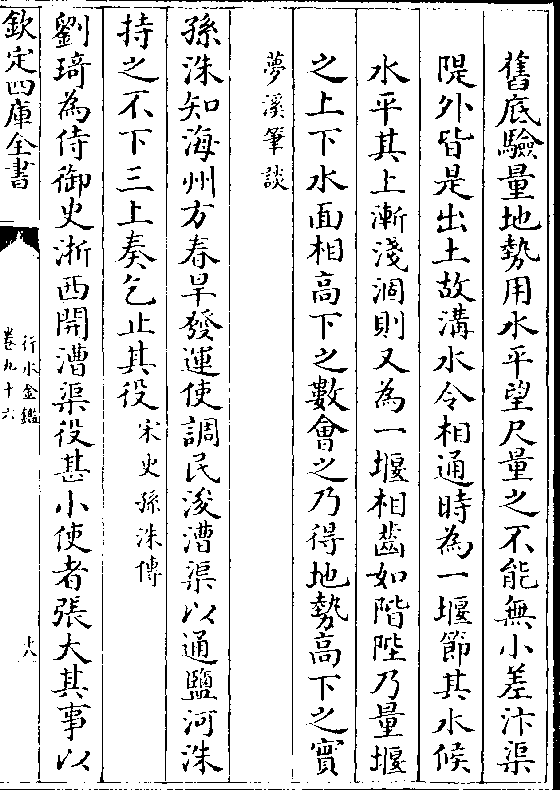 舊底驗量地勢用水平望尺量之不能無小差汴渠
隄外皆是出土故溝水令相通時為一堰節其水候
水平其上漸淺涸則又為一堰相齒如階陛乃量堰
之上下水面相高下之數會之乃得地勢高下之實
夢溪筆談
孫洙知海州方春旱發運使調民浚漕渠以通鹽河洙
持之不下三上奏乞止其役宋史孫洙傳
劉琦為侍御史浙西開漕渠役甚小使者張大其事以
欽定四庫全書
行水金鑑
卷九十六
十八